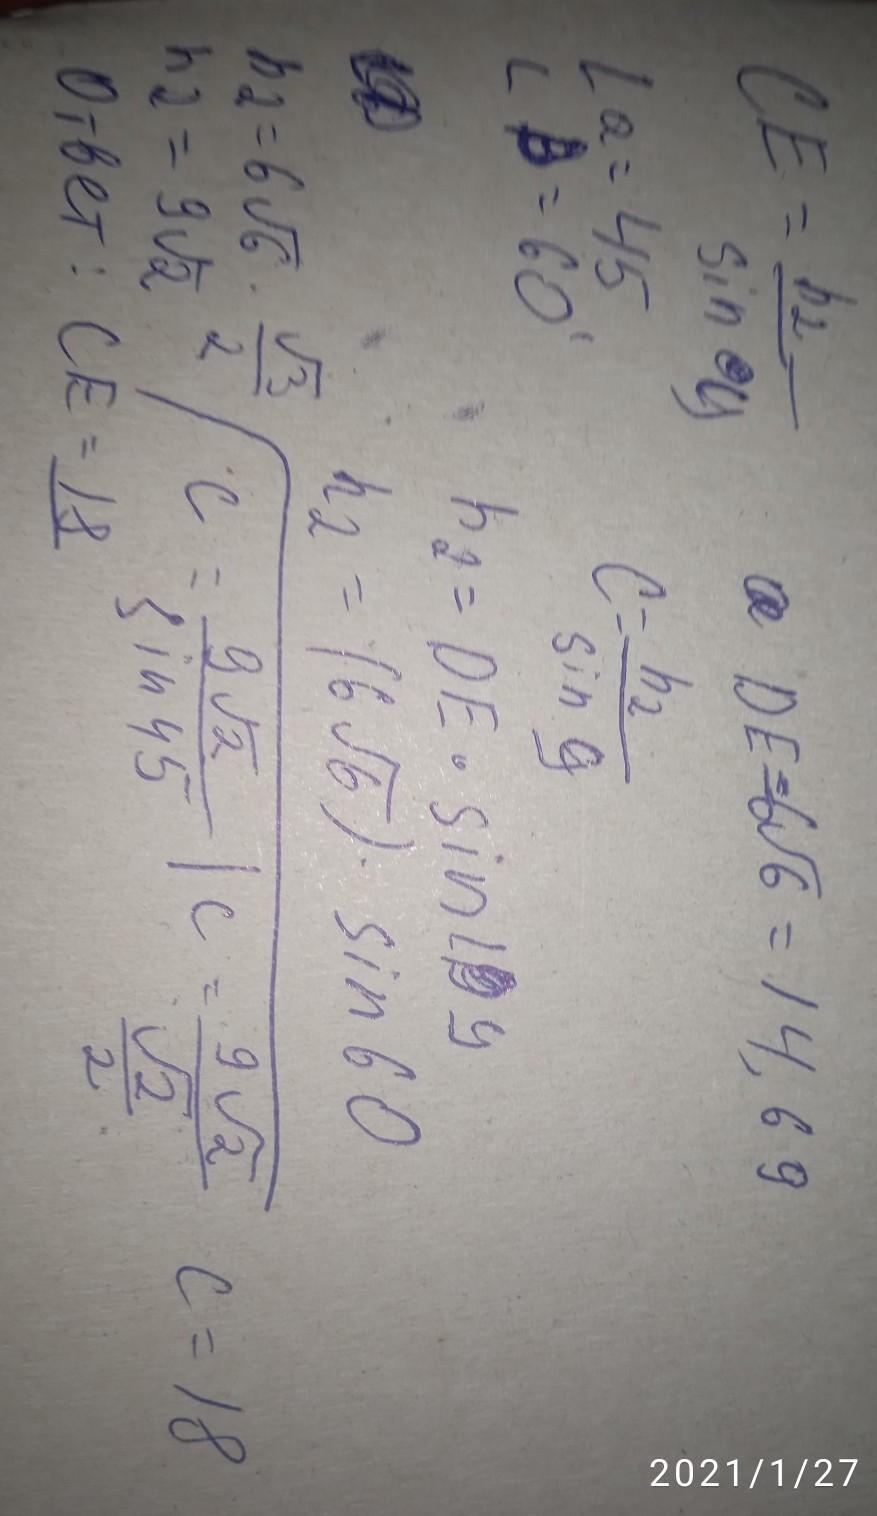 CE = h₂ / sin y
DE = 6√6 = 14,69
∠a = 45
C = h₂ / sin y
∠B = 60°
h₂ = DE · sin y
h₂ = (6√6) · sin 60
h₂ = 6√6 · √3 / 2
h₂ = 9√2
C = 9√2 / sin 45 | C = 9√2 / √2 / 2
C = 18
Ответ: CE = 18
2021/1/27